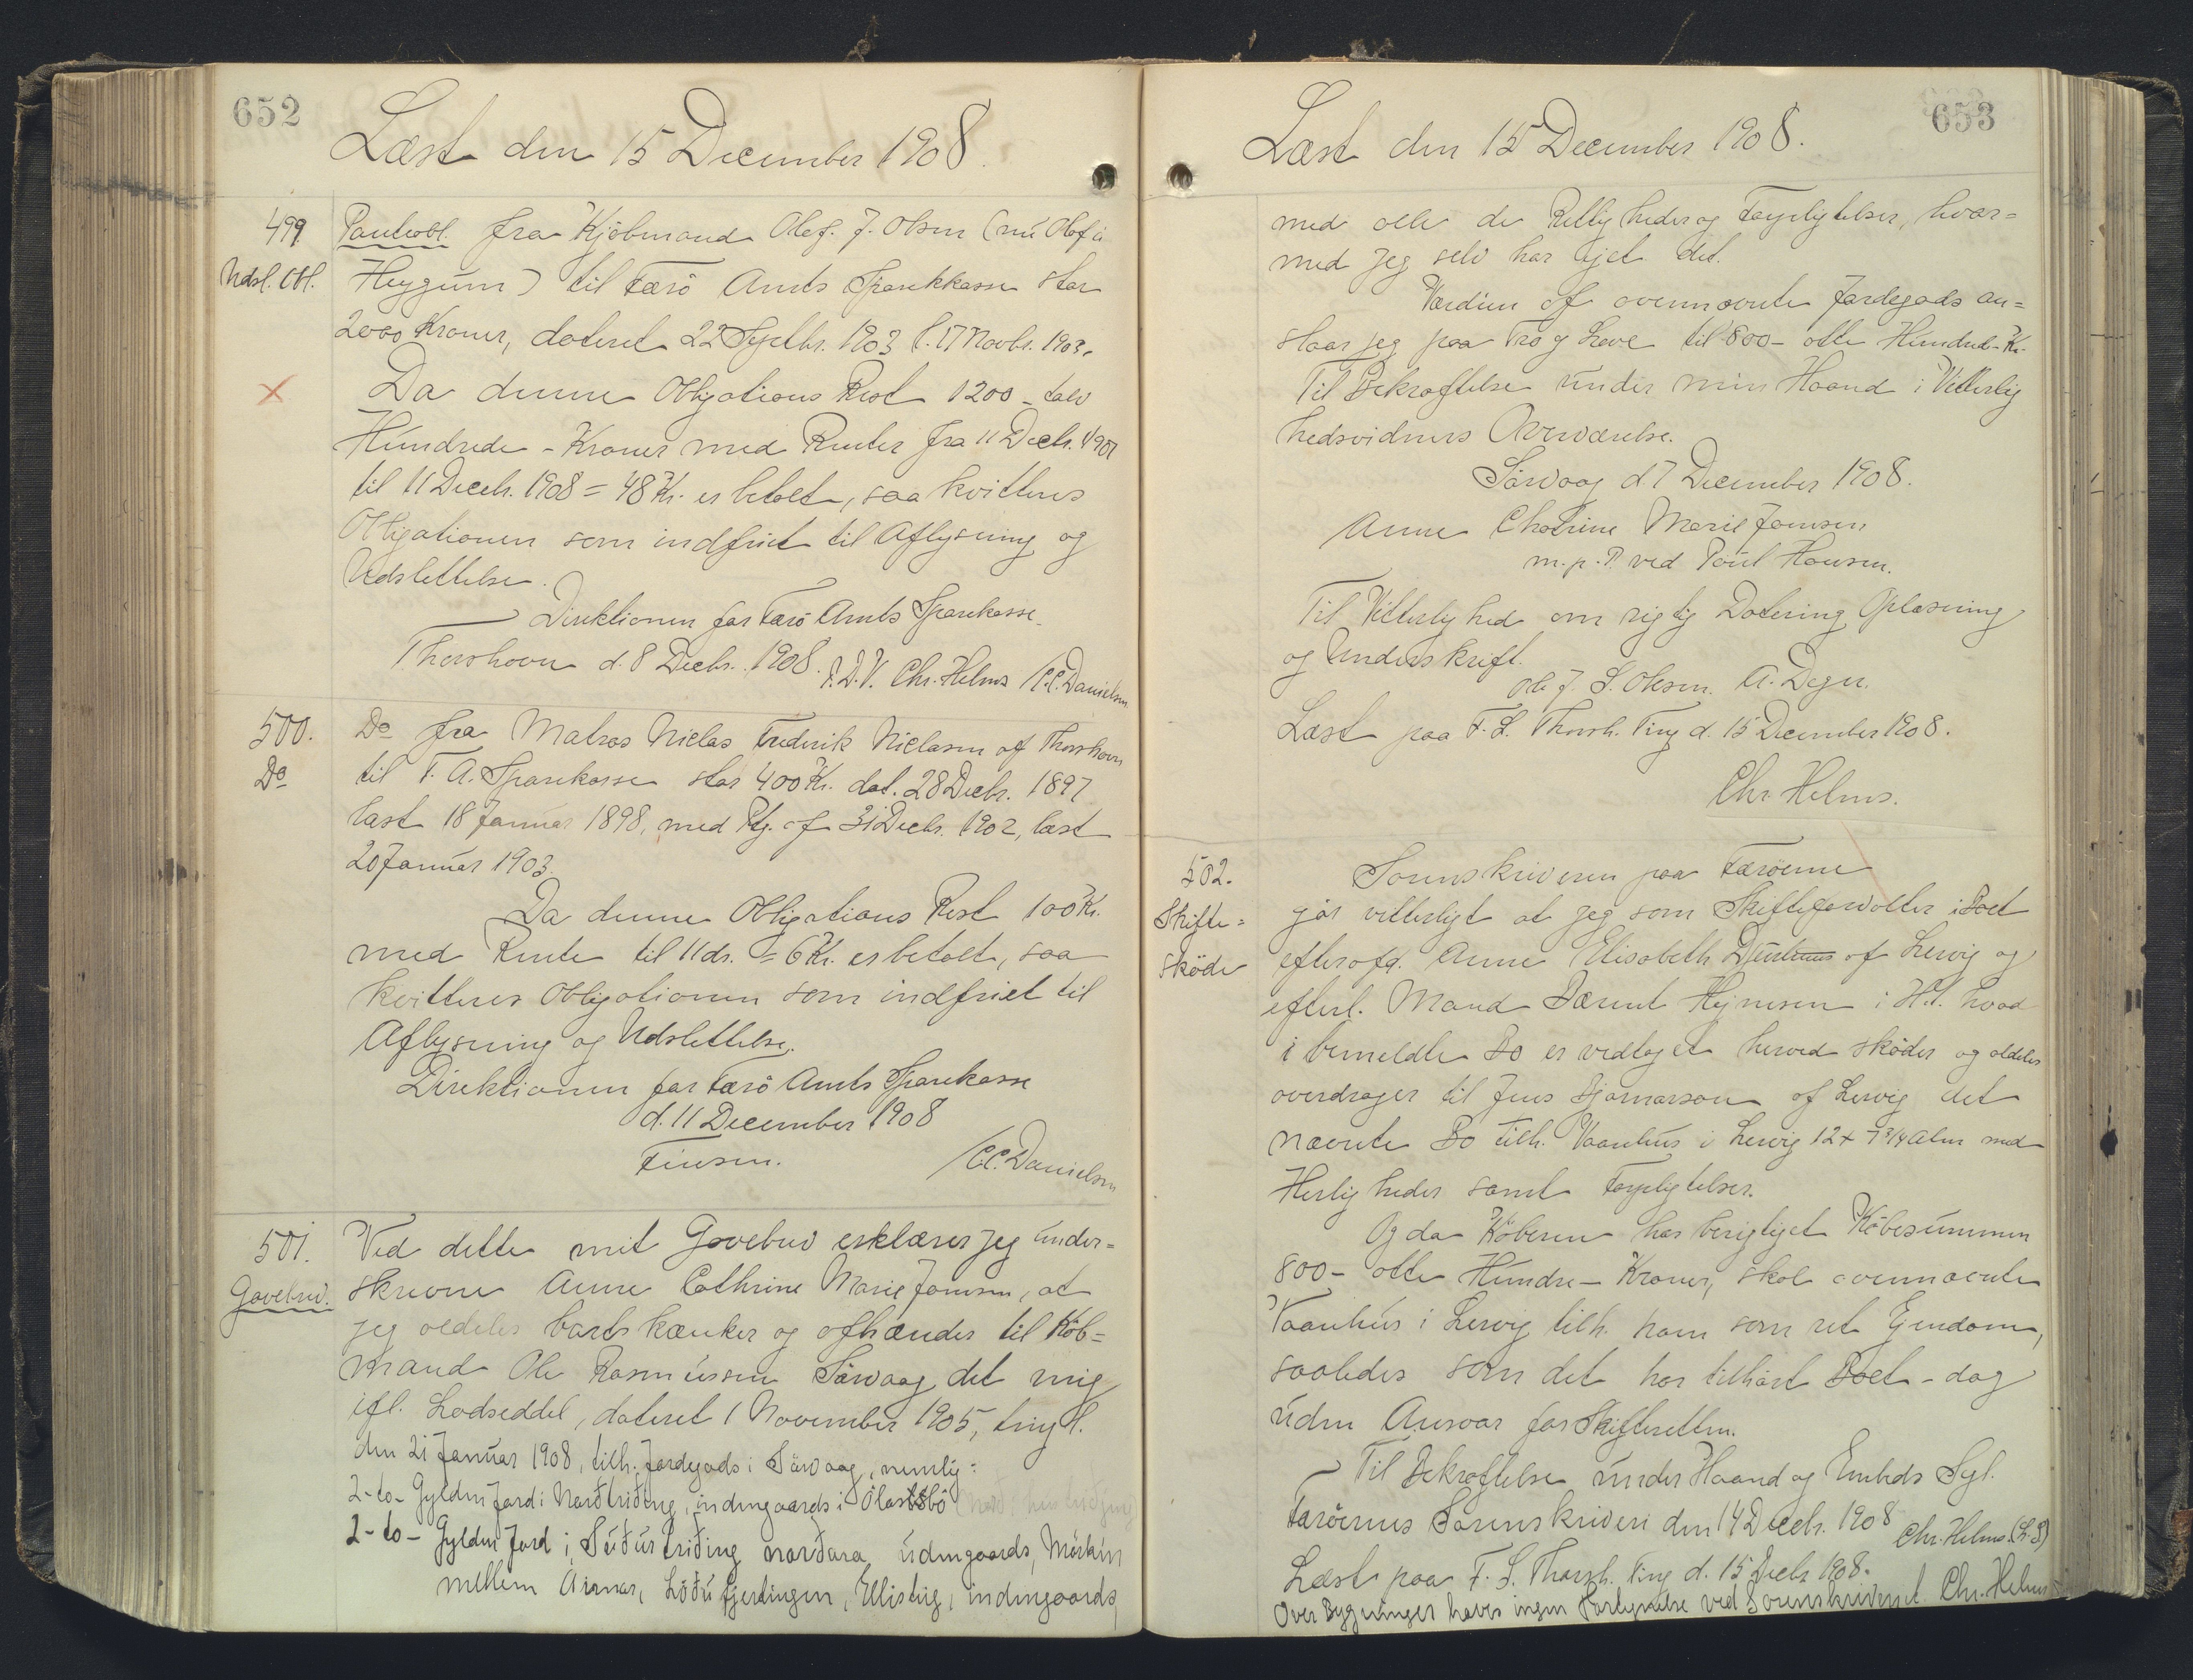 652
Læst den 15 December 1908.
499
Udsl. Obl.
Panteobl. fra Kjöbmand Olaf. J. Olsen (nu Olaf á
Heygum) til Færö Amts Sparekasse stor
2000 Kroner, dateret 22 Septbr. 1903 l. 17 Novbr. 1903.
Da denne Obligations Rest 1200 - tolv
Hundrede - Kroner med Renter fra 11 Decbr. 1907
til 11 Decbr. 1908 = 48 Kr. er betalt, saa kvitteres
Obligationen som indfriet til Aflysning og
Udslettelse.
Direktionen for Færö Amts Sparekasse
Thorshavn d. 8 Decbr. 1908. P.D.V. Chr. Helms /C.C. Danielsen
500.
Do
Do fra Matros Niclas Frederik Niclasen af Thorshavn
til F. A. Sparekasse stor 400 Kr. dat. 28 Decbr. 1897
læst 18 Januar 1898, med Ptg. af 31 Decbr. 1902, læst
20 Januar 1903.
Da denne Obligations Rest 100 Kr.
med Rente til 11 ds. = 6 Kr. er betalt, saa
kvitteres Obligationen som indfriet til
Aflysning og Udslettelse.
Direktionen for Færö Amts Sparekasse
d. 11 December 1908
Finsen. /C.C. Danielsen
501.
Gavebrev.
Ved dette mit Gavebrev erklærer jeg under=
skrevne Anne Cathrine Marie Joensen, at
jeg aldeles bortskænker og afhænder til Köb=
mand Ole Rasmussen Sörvaag det mig
ifl. Lodseddel, dateret 1 November 1905, tingl.
den 21 Januar 1908, tilh. Jordegods i Sörvaag, nemlig:
2-to- Gylden Jord i Norðtriðing, indengaards i Ólastsbö
2-to- Gylden Jord i Suðurtriðing norðara, udengaards, Mörkin
mellem Áirnar, Löðu fjerdingen, Ellistig, indengaards
653
Læst den 15 December 1908.
med alle de Rettigheder og Forpligtelser, hvor=
med jeg selv har ejet det.
Værdien af ovennævnte Jordegods an=
slaar jeg paa Tro og Love til 800 - otte Hundrede - Kr.
Til Bekræftelse under min Haand i Vitterlig
hedsvidners Overværelse.
Sörvaag d. 7 December 1908.
Anne Chatrine Marie Joensen
m. p. P. ved Poul Hansen.
Til Vitterlighed om rigtig Datering Oplæsning
og Underskrift.
Ole J. S. Olesen. A. Degn.
Læst paa F. S. Thorsh. Ting d. 15 December 1908.
Chr. Helms.
502.
Skifte=
sköde
Sorenskriveren paa Færöerne
gör vitterligt at jeg som Skifteforvalter i Boet
efter afd. Anne Elisabeth af Lervig og
efterl. Mand Dæmt Hejnesen i H. t. hvad
i bemeldte Bo er vedtaget herved sköder og aldeles
overdrager til Jens Bjarnarson af Lervig det
nævnte Bo tilh. Vaanhus i Lervig 12 x 7 3/4 Alen med
Herligheder samt Forpligtelser.
Og da Köberen har berigtiget Köbesummen
800 - otte Hundre - Kroner, skal ovennævnte
Vaanhus i Lervig tilh. ham som ret Ejendom,
saaledes som det har tilhört Boet - dog
uden Ansvar for Skifteretten.
Til Bekræftelse under Haand og Embeds Segl.
Færöernes Sorenskriveri den 14 Decbr. 1908 Chr. Helms. (L.S)
Læst paa F. S. Thorsh. Ting d. 15 Decbr. 1908.
Over Bygninger haves ingen Fortegnelse ved Sorenskriveriet. Chr. Helms